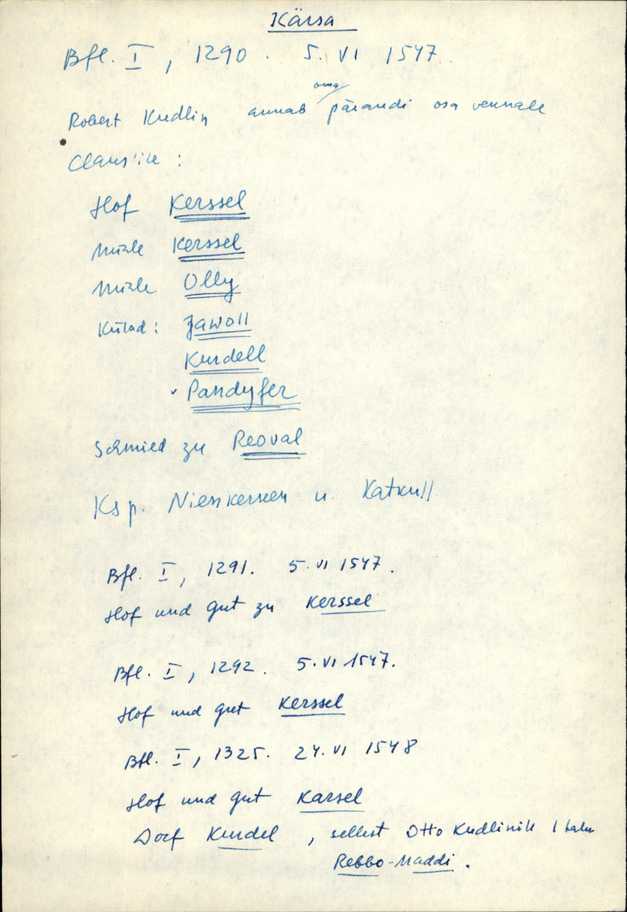 Kärsa
Bfl. I, 1290. 5. VI 1547.
oma
Robert Kudlin annab pärandi osa vennale
Claus'ile:
Hof Kerssel
Mühle Kerssel
Mühle Olly
Külad: Jawoll
Kurdell
Pandyfer
Schmied zu Reoval
Ksp. Nienkerken u. Katkull
Bfl. I, 1291. 5. VI 1547.
Hof und gut zu Kerssel
Bfl. I, 1292. 5. VI 1547.
Hof und gut Kerssel
Bfl. I, 1325. 24. VI 1548
Hof und gut Karsel
Dorf Kurdel, selbst Otto Kudlinik 1
Rebbo-Maddi.